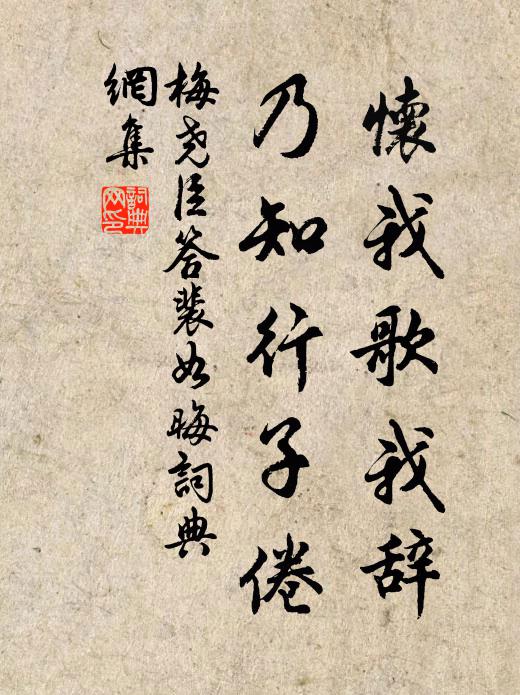 懷我歌我辞
乃知行子倦
梅尧臣答裴如晦詞典
網集
詞典
网印